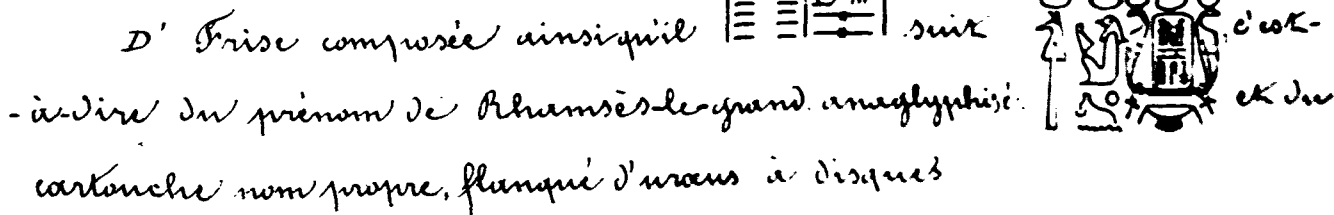 D' Frise composée ainsi qu'il suit c'est-
-à-dire du prénom de Rhamsès-le-grand anaglyphisé et du
cartouche nom propre, flanqué d'uraeus à disques